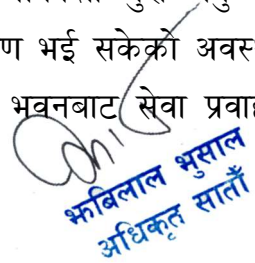 ण भई सकेको अवस
भवनबाट सेवा प्रवा
झबिलाल भुसाल
अधिकृत सातौँ